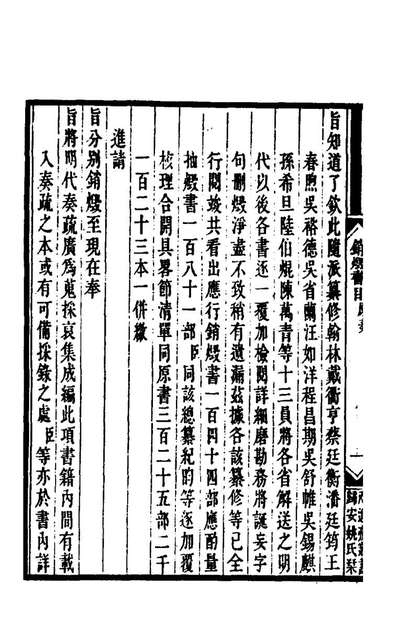 旨知道了欽此隨派纂修翰林戴衢亨蔡廷衡潘廷筠王
春煦吳裕德吳省蘭汪如洋程昌期吳舒帷吳錫麒
孫希旦陸伯焜陳萬青等十三員將各省解送之明
代以後各書逐一覆加檢閱詳細磨勘務將誕妄字
句刪燬淨盡不致稍有遺漏茲據各該纂修等已全
行閱竣共看出應行銷燬書一百四十四部應酌量
抽燬書一百八十一部臣同該總纂紀昀等逐加覆
核理合開具畧節清單同原書三百二十五部二千
一百二十三本一併繳
進請
旨分別銷燬至現在奉
旨將明代奏疏廣為蒐採裒集成編此項書籍內間有載
入奏疏之本或有可備採錄之處臣等亦於書內詳
銷燬書目原奏
一
歸安姚氏栞